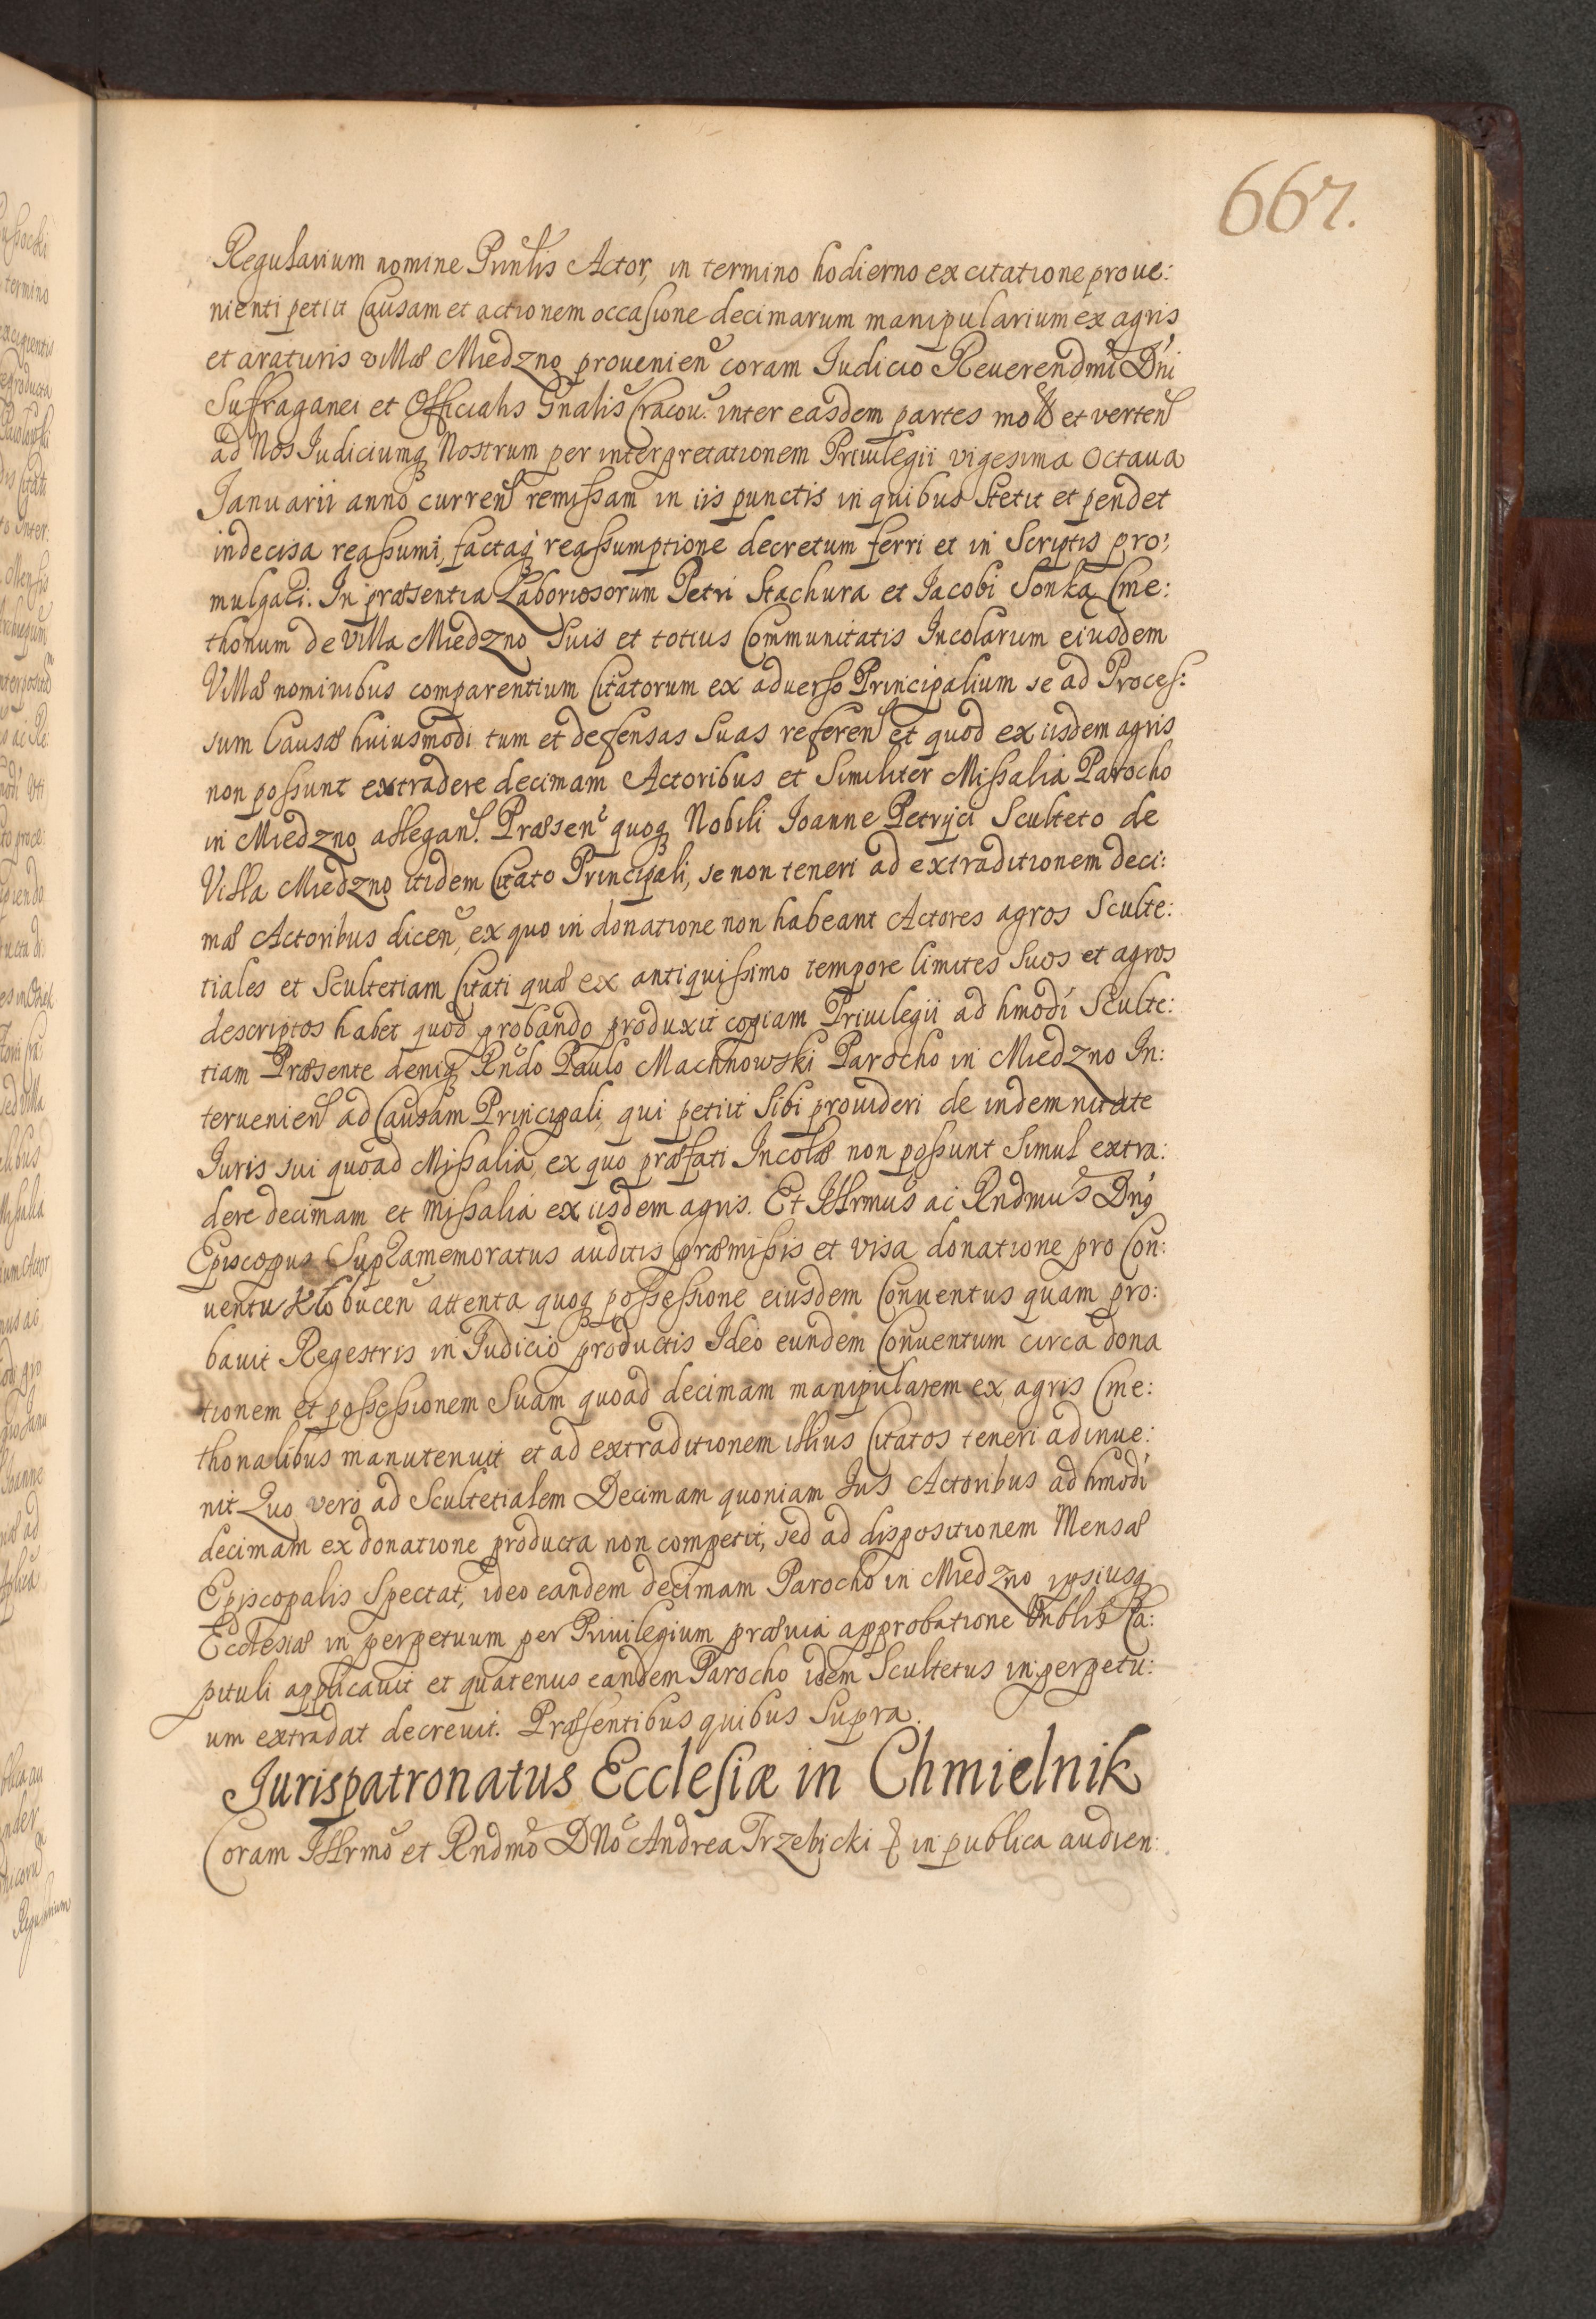 667.
Regularium nomine Prinlis Actor, in termino hodierno ex citatione proue:
nienti petiit Causam et actionem occasione decimarum manipularium ex agris
et araturis villæ Miedzno prouenien coram Iudicio Reuerendmi Dni
Suffraganei et Officialis Gnalis Cracou. inter easdem partes et verten
ad Nos Iudiciumq Nostrum per interpretationem Priuilegii vigesima Octaua
Ianuarii anno curren remissam in iis punctis in quibus Stetit et pendet
indecisa reassumi, factaq reassumptione decretum ferri et in Scriptis pro:
mulgari. In præsentia Laboriosorum Petri Stachura et Iacobi Sonka Cme:
thonum de Villa Miedzno Suis et totius Communitatis Incolarum eiusdem
Villæ nominibus comparentium Citatorum ex aduerso Principalium se ad Proces:
sum Causæ huiusmodi tum et defensas Suas referen et quod ex iisdem agris
non possunt extradere decimam Actoribus et Similiter Missalia Parocho
in Miedzno allegan. Præsen quoq Nobili Ioanne Petryci Sculteto de
Villa Miedzno itidem Citato Principali, se non teneri ad extraditionem deci:
mæ Actoribus dicen, ex quo in donatione non habeant Actores agros Sculte:
tiales et Scultetiam Citati quæ ex antiquissimo tempore limites Suos et agros
descriptos habet quod probando produxit copiam Priuilegii ad hmodi Sculte:
tiam Præsente deniq Rndo Paulo Machnowski Parocho in Miedzno In:
teruenien ad Causam Principali, qui petiit Sibi prouideri de indemnitate
Iuris sui quoad Missalia, ex quo præfati Incolæ non possunt Simul extra:
dere decimam et Missalia ex iisdem agris. Et Illrmus ac Rndmus Dnus
Episcopus Supramemoratus auditis præmissis et visa donatione pro Con:
uentu Klobucen attenta quoq possessione eiusdem Conuentus quam pro:
bauit Regestris in Iudicio productis Ideo eundem Conuentum circa dona
tionem et possessionem Suam quoad decimam manipularem ex agris Cme:
thonalibus manutenuit et ad extraditionem illius Citatos teneri adinue:
nit Quo vero ad Scultetialem Decimam quoniam Ius Actoribus ad hmodi
decimam ex donatione producta non competit, sed ad dispositionem Mensæ
Episcopalis Spectat, ideo eandem decimam Parocho in Miedzno ipsiusq
Ecclesiæ in perpetuum per Priuilegium præuia approbatione Vnblis Ca:
pituli applicauit et quatenus eandem Parocho idem Scultetus in perpetu:
um extradat decreuit. Præsentibus quibus Supra.
Jurispatronatus Ecclesiæ in Chmielnik
Coram Illrmo et Rndmo DNo Andrea Trzebicki in publica audien: